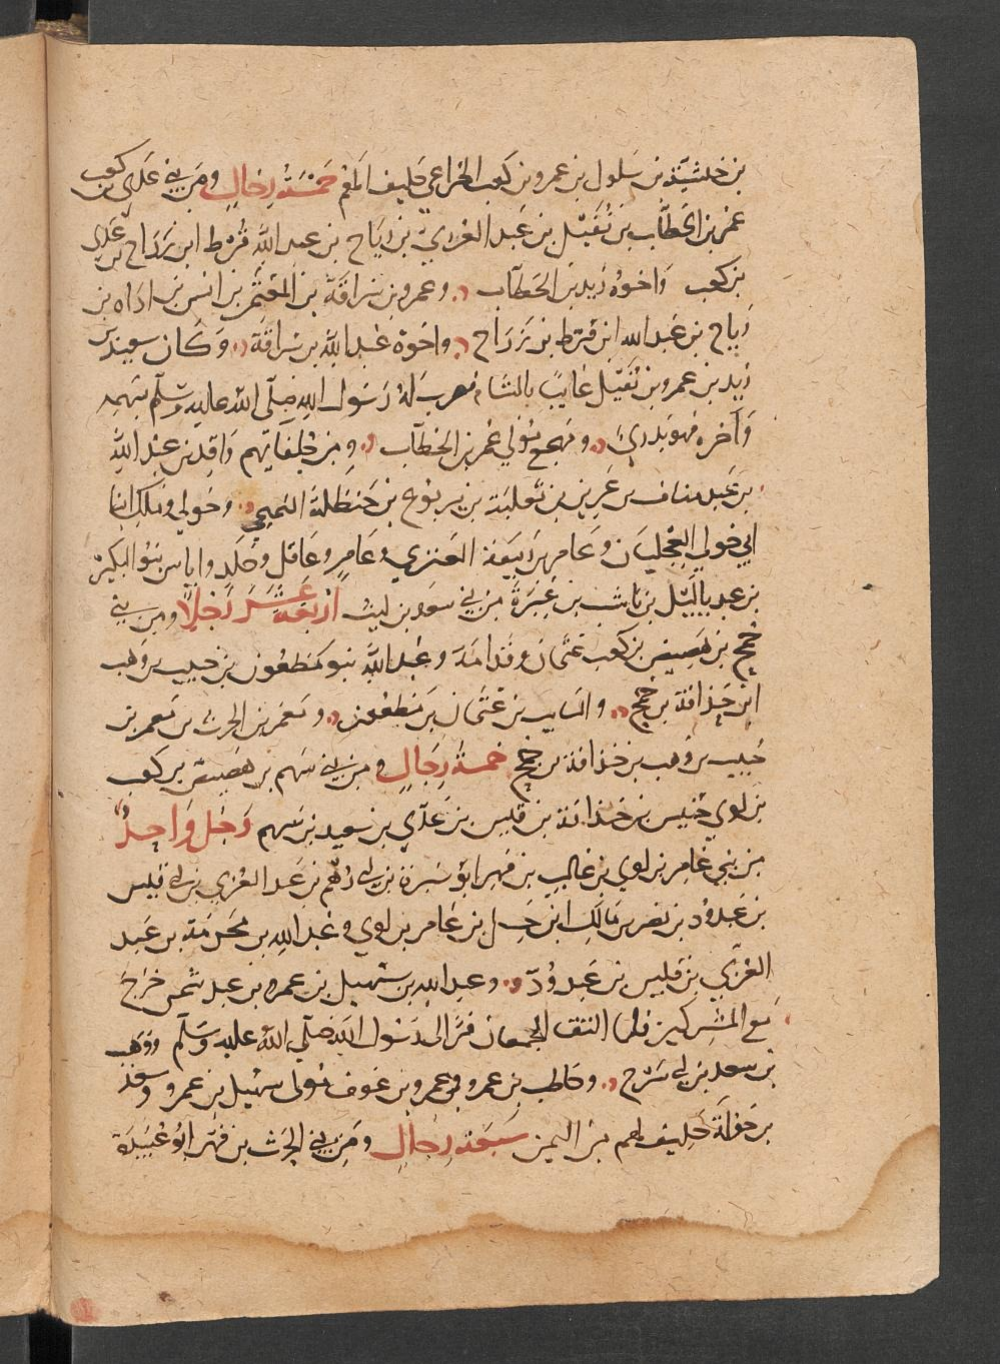 بن خلشية بن سلول بن عمرو بن كعب الخزاعي حليف لهم خمسة رجال ومن بني عدي بن كعب
عمر بن الخطاب بن نفيل بن عبد العزى بن رياح بن عبد الله قرط ابن رزاح بن عدي
بن كعب واخوه زيد بن الخطاب وعمرو بن سراقة بن المعتمر بن انس بن اداه بن
رياح بن عبد الله ابن قرط بن رزاح واخوه عبد الله بن سراقة وكان سعيد بن
زيد بن عمرو بن نفيل غايبا بالشام فضرب له رسول الله صلى الله عليه وسلم بسهمه
واخره فهو بدري ومهجع مولي عمر بن الخطاب ومن حلفايهم واقد بن عبد الله
بن عبد مناف بن عرين بن ثعلبة بن يربوع بن حنظلة التميمي وخولي وملك ابنا
ابي خولي العجليان وعامر بن ربيعة العنزي وعامر وعاقل وخلد واياس بنو البكير
بن عبد ياليل بن ناشب بن غيرة من بني سعد بن ليث اربعة عشر رجلا ومن بني
جمح بن هصيص بن كعب عثمان وقدامة وعبد الله بنو مظعون بن حبيب بن وهب
ابن حذافة بن جمح والسايب بن عثمان بن مظعون ومعمر بن الحرث بن معمر بن
حبيب بن وهب بن حذافة بن جمح خمسة رجال ومن بني سهم بن هصيص بن كعب
بن لوي خنيس بن حذافة بن قيس بن عدي بن سعيد بن سهم رجل واحد
من بني عامر بن لوي بن غالب بن فهر ابو سبرة بن ابي رهم بن عبد العزي بن ابي قيس
بن عبد ود بن نصر بن مالك ابن حسل بن عامر بن لوي وعبد الله بن مخرمة بن عبد
العزي بن قيس بن عبد ود وعبد الله بن سهيل بن عمرو بن عبد شمس خرج
مع المشركين فلما التقا الجمعان فر الى رسول الله صلى الله عليه وسلم ووهب
بن سعد بن ابي سرح وحاطب بن عمرو وعمرو بن عوف مولى سهيل بن عمرو وسعد
بن خولة حليف لهم من اليمن سبعة رجال ومن بني الحرث بن فهر ابو عبيدة